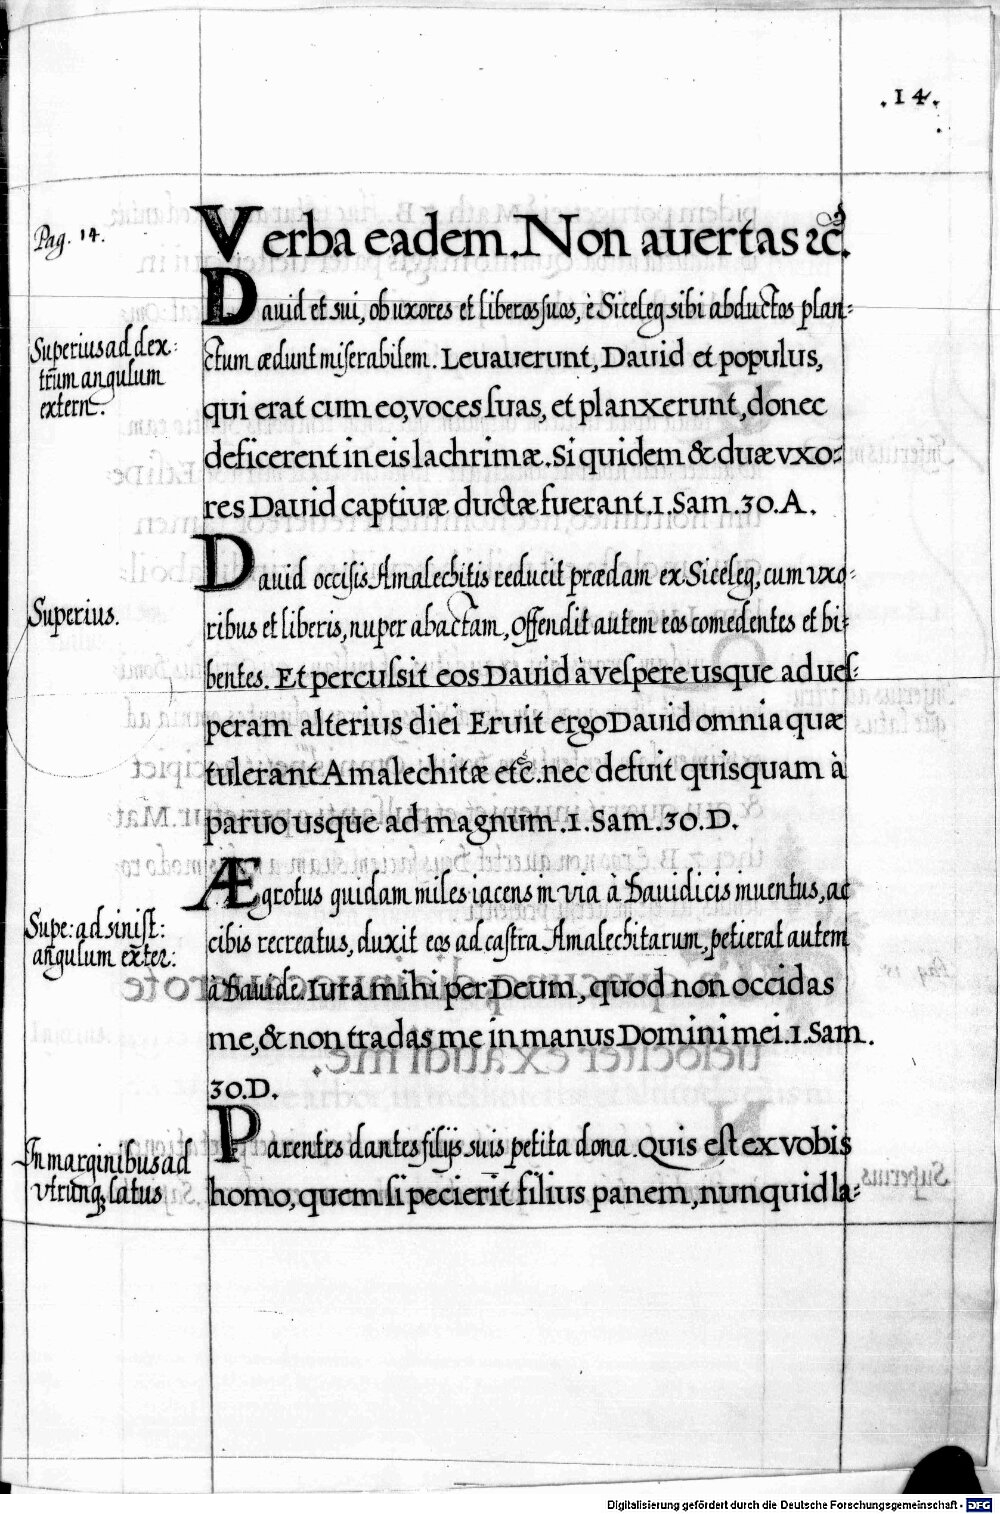 .14.
Pag. 14.
Verba eadem. Non auertas ꝛc̃.
Superius ad dex:
trũm angulum
extern̄:
Dauid et sui, ob uxores et liberos suos, è Siceleg sibi abductos plan=
ctum ædunt miserabilem. Leuauerunt, Dauid et populus,
qui erat cum eo, voces suas, et planxerunt, donec
deficerent in eis lachrimæ. Si quidem & duæ vxo=
res Dauid captiuæ ductæ fuerant. 1. Sam. 30. A.
Superius.
Dauid occisis Amalechitis reducit prædam ex Siceleg, cum vxo=
ribus et liberis, nuper abactam, offendit autem eos comedentes et bi=
bentes. Et percussit eos Dauid à vespere usque ad ues=
peram alterius diei Eruit ergo Dauid omnia quæ
tulerant Amalechitæ etc̃. nec defuit quisquam à
paruo usque ad magnum. 1. Sam. 30. D.
Supe: ad sinist:
angulum exter:
Ægrotus quidam miles iacens in via à Dauidicis inuentus, ac
cibis recreatus, duxit eos ad castra Amalechitarum, petierat autem
à Dauide. Iura mihi per Deum, quod non occidas
me, & non tradas me in manus Domini mei. 1. Sam.
30. D.
In marginibus ad
utrunq̃ latus
Parentes dantes filijs suis petita dona. Quis est ex vobis
homo, quem si pecierit filius panem, nunquid la=
Digitalisierung gefördert durch die Deutsche Forschungsgemeinschaft - DFG